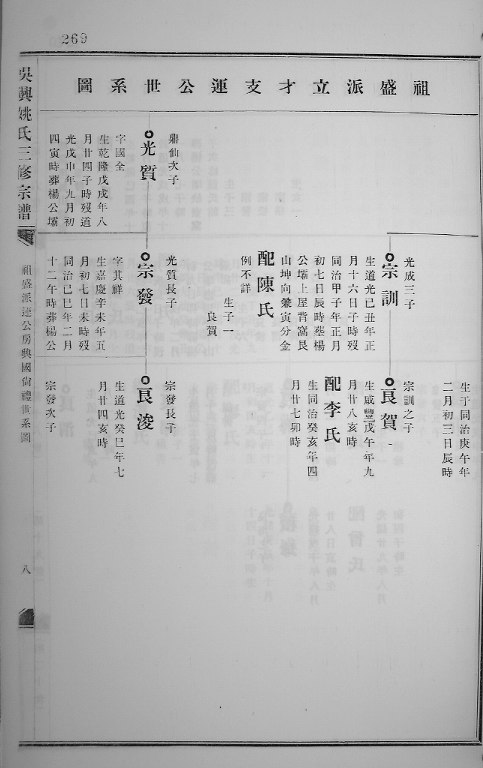 269
祖盛派立才支運公世系圖
生于同治庚午年
二月初三日辰時
光成三子
宗訓
生道光己丑年正
月十六日子時歿
同治甲子年正月
初七日辰時塟楊
公壩上屋背窩艮
山坤向兼寅分金
配陳氏
例不詳
生子一
良賀
宗訓之子
良賀
生咸豐戊午年九
月廿八亥時
配李氏
生同治癸亥年四
月廿七卯時
鼎仙次子
光質
字國全
生乾隆戊戌年八
月廿四子時歿道
光戊申年九月初
四寅時葬楊公壩
光質長子
宗發
字其鮮
生嘉慶辛未年五
月初七日未時歿
同治己巳年二月
十二午時葬楊公
宗發長子
良浚
生道光癸巳年七
月廿四亥時
宗發次子
吳興姚氏三修宗譜
祖盛派運公房興國尙禮世系圖
八